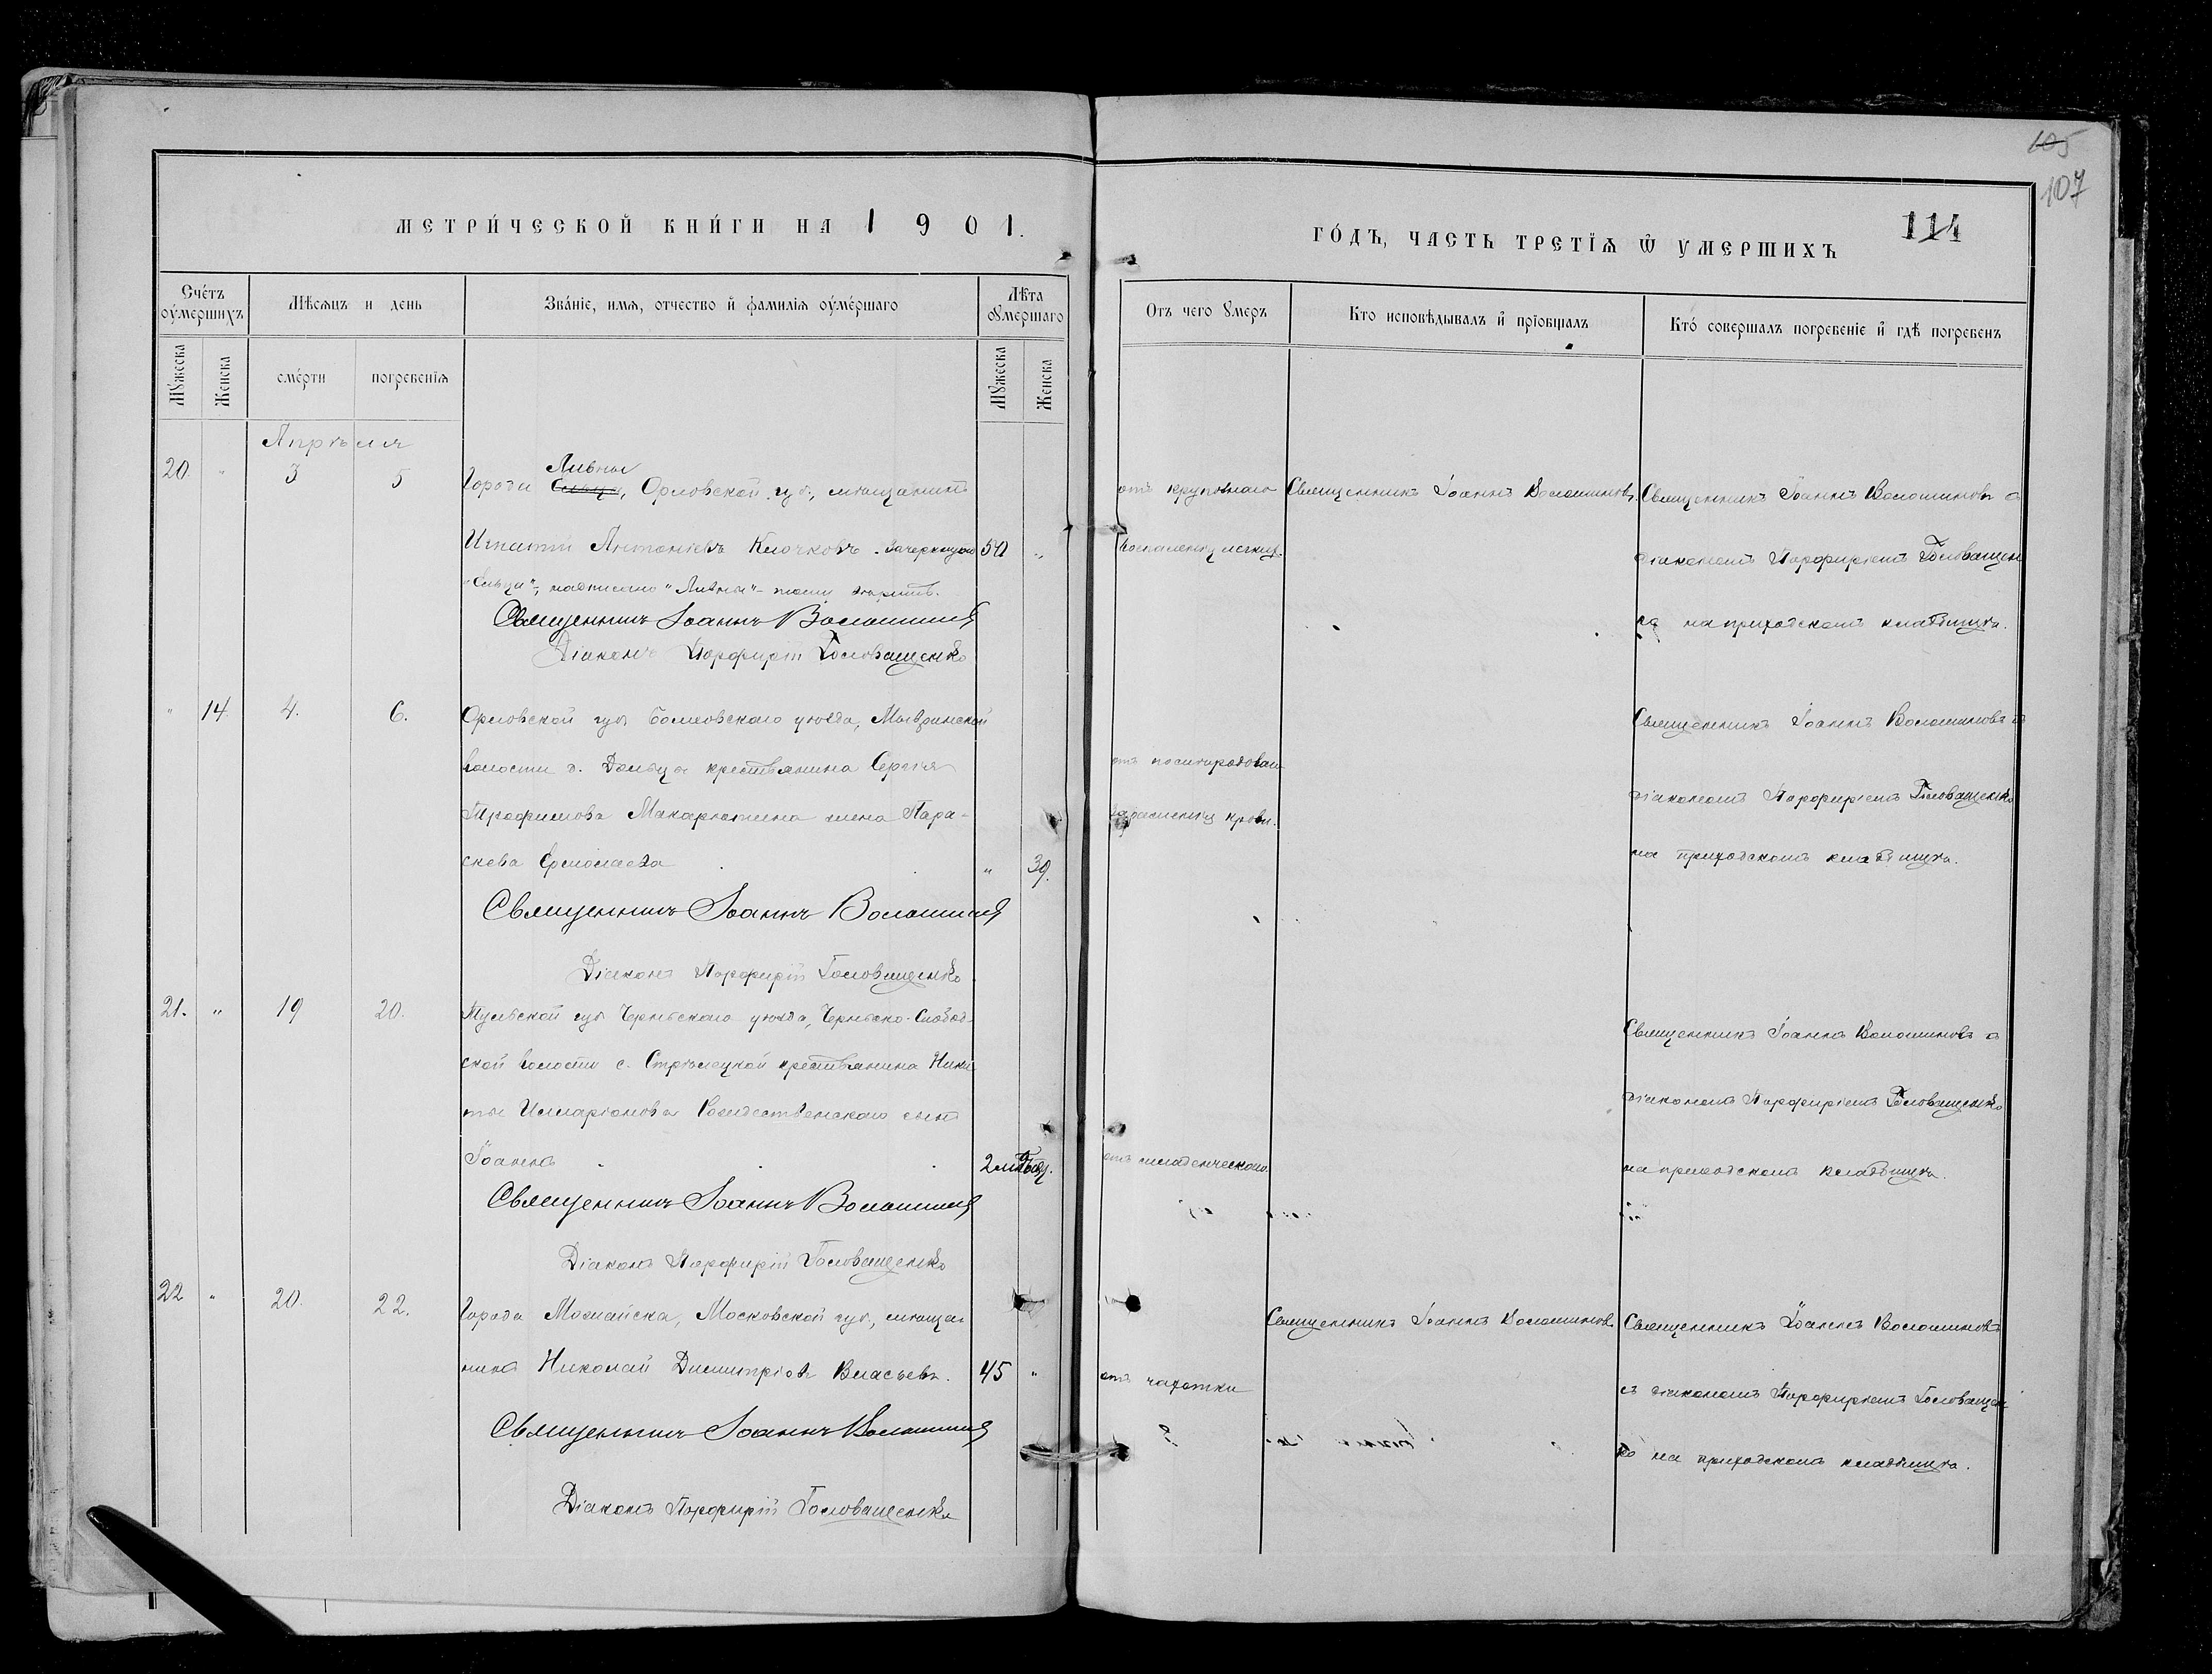 105
107
114
МЕТРИ́ЧЕСКОЙ КНИ́ГИ НА 1901.
ГО́ДЪ, ЧАСТЬ ТРЕТІѦ Ѿ УМЕРШИХЪ
Сче́тъ оуме́ршихъ
Мѣсѧцъ и день
Зва́ніе, имѧ, отчество и фамиліѧ оуме́ршаго
Лѣта оуме́ршаго
Отъ чего умеръ
Кто исповѣдывалъ и пріобщалъ
Кто́ совершалъ погребеніе и гдѣ погребенъ
Мужеска
Женска
сме́рти
погребенїѧ
Мужеска
Женска
Апрѣля
20 " 3 5
Ливны
Города Ельца, Орловской губ., мѣщанинъ
Игнатій Антоніевъ Клочковъ. Зачеркнуто 50 "
"Ельца", надписано "Ливны" - тому вѣрить.
Священникъ Іоаннъ Волошиновъ
Діаконъ Порфирій Головащенко
отъ крупознаго
воспаленія легких.
Священникъ Іоаннъ Волошиновъ.
Священникъ Іоаннъ Волошиновъ съ
діакономъ Порфиріемъ Головащен
ко на приходскомъ кладбищѣ.
" 14 4. 6.
Орловской губ. Болховского уѣзда,
волости д. Дольца крестьянина Сергія
Трофимова Макарюткина жена Пара-
скева Ермолаева " 39.
Священникъ Іоаннъ Волошиновъ
Діаконъ Порфирій Головащенко.
отъ послѣродоваго
зараженія крови.
Священникъ Іоаннъ Волошиновъ съ
діакономъ Порфиріемъ Головащенко
на приходскомъ кладбищѣ.
21. " 19 20.
Тульской губ. Чернского уѣзда, Чернско-Слобод-
ской волости с. Стрѣлецкой крестьянина Ники
ты Илларіонова Рождественскаго сынъ
Іоаннъ
Священникъ Іоаннъ Волошиновъ
Діаконъ Порфирій Головащенко
отъ младенческой.
Священникъ Іоаннъ Волошиновъ съ
діакономъ Порфиріемъ Головащенко
на приходскомъ кладбищѣ.
22 " 20. 22.
Города Можайска, Московской губ., мѣща-
нинъ Николай Димитріевъ Власьевъ. 45 "
Священникъ Іоаннъ Волошиновъ
Діаконъ Порфирій Головащенко
отъ чахотки
Священникъ Іоаннъ Волошиновъ
Священникъ Іоаннъ Волошиновъ
съ діакономъ Порфиріемъ Головащен
ко на приходскомъ кладбищѣ.